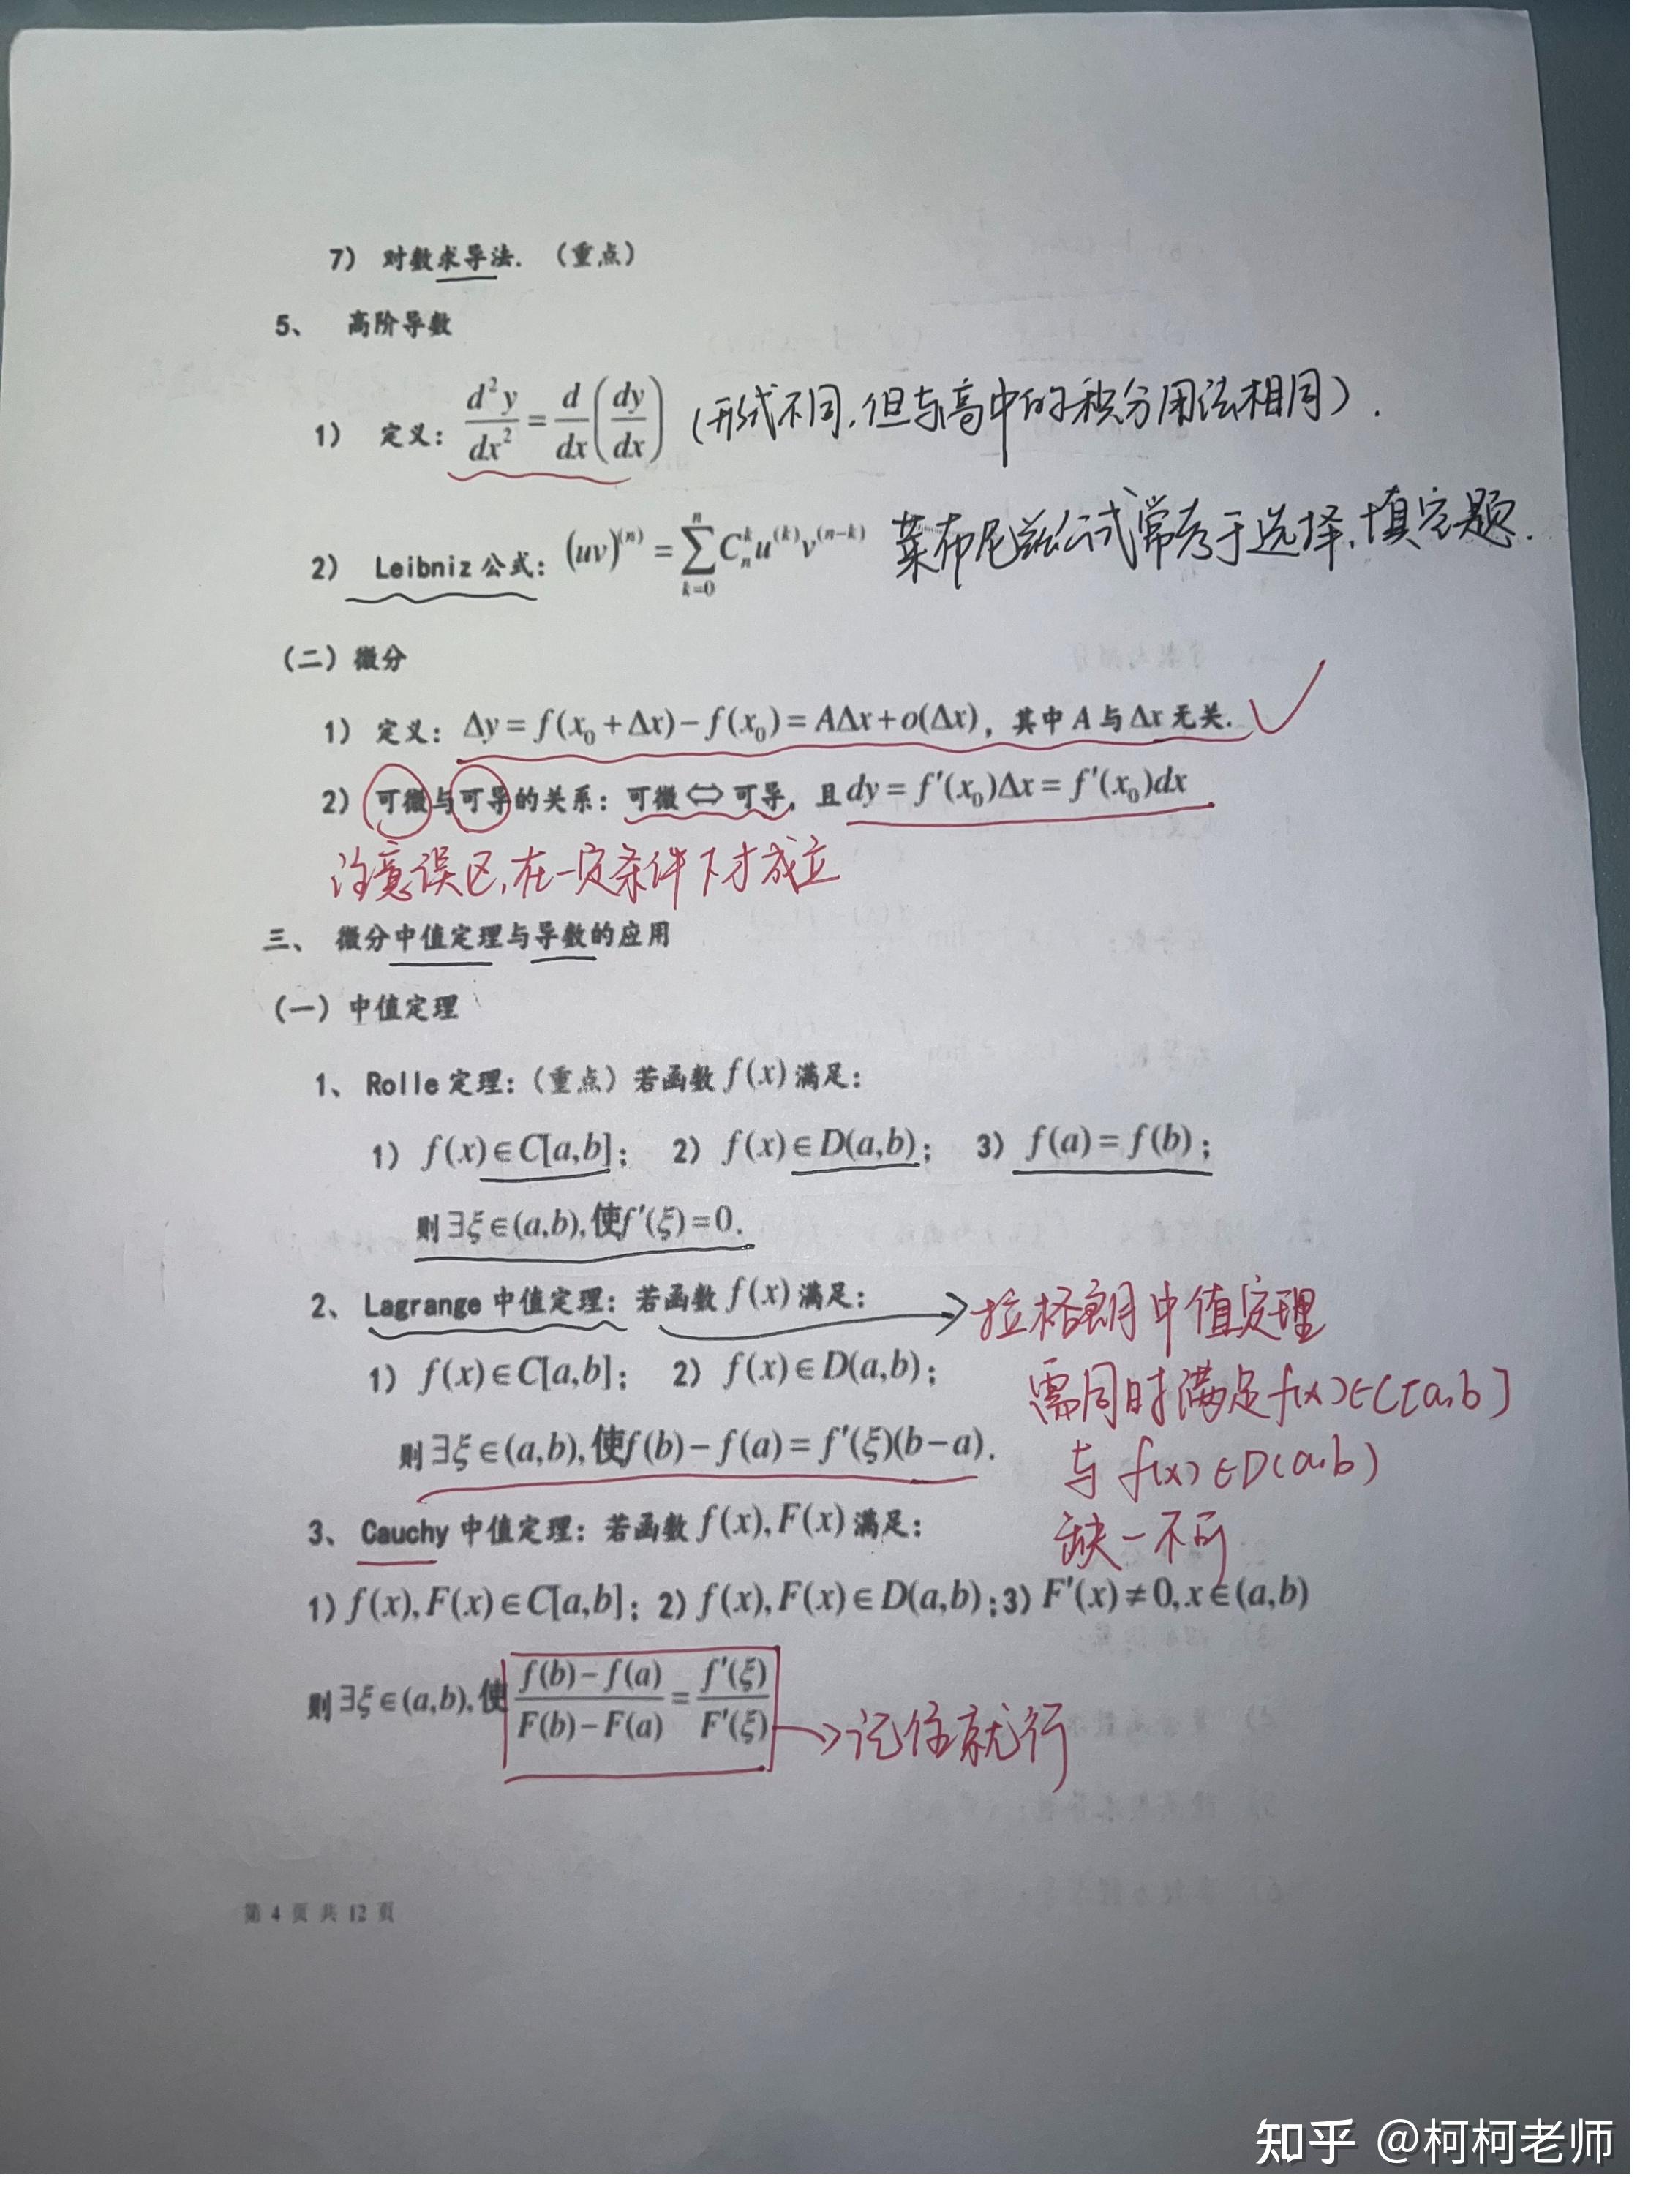 7） 对数求导法. （重点）
5、 高阶导数
1） 定义： d²y/dx² = d/dx (dy/dx) （形式不同,但与高中的积分用法相同）.
2） Leibniz 公式： (uv)⁽ⁿ⁾ = ∑ₖ₌₀ⁿ Cₙᵏ u⁽ᵏ⁾ v⁽ⁿ⁻ᵏ⁾ 莱布尼兹公式常考于选择,填空题.
（二）微分
1） 定义： Δy = f(x₀ + Δx) − f(x₀) = AΔx + o(Δx)，其中 A 与 Δx 无关. ✓
2） 可微与可导的关系：可微⇔可导，且 dy = f′(x₀)Δx = f′(x₀)dx
注意误区,在一定条件下才成立
三、 微分中值定理与导数的应用
（一）中值定理
1、 Rolle 定理：（重点）若函数 f(x) 满足：
1） f(x) ∈ C[a,b]； 2） f(x) ∈ D(a,b)； 3） f(a) = f(b)；
则 ∃ξ ∈ (a,b), 使f′(ξ) = 0.
2、 Lagrange 中值定理：若函数 f(x) 满足： → 拉格朗中值定理
1） f(x) ∈ C[a,b]； 2） f(x) ∈ D(a,b)；
需同时满足 f(x) ∈ C[a,b]
则 ∃ξ ∈ (a,b), 使f(b) − f(a) = f′(ξ)(b − a).
与 f(x) ∈ D(a,b)
3、 Cauchy 中值定理：若函数 f(x), F(x) 满足：
缺一不可
1) f(x), F(x) ∈ C[a,b]；2) f(x), F(x) ∈ D(a,b)；3) F′(x) ≠ 0, x ∈ (a,b)
则 ∃ξ ∈ (a,b), 使 (f(b) − f(a))/(F(b) − F(a)) = f′(ξ)/F′(ξ) → 记住就行
第 4 页 共 12 页
知乎 @柯柯老师